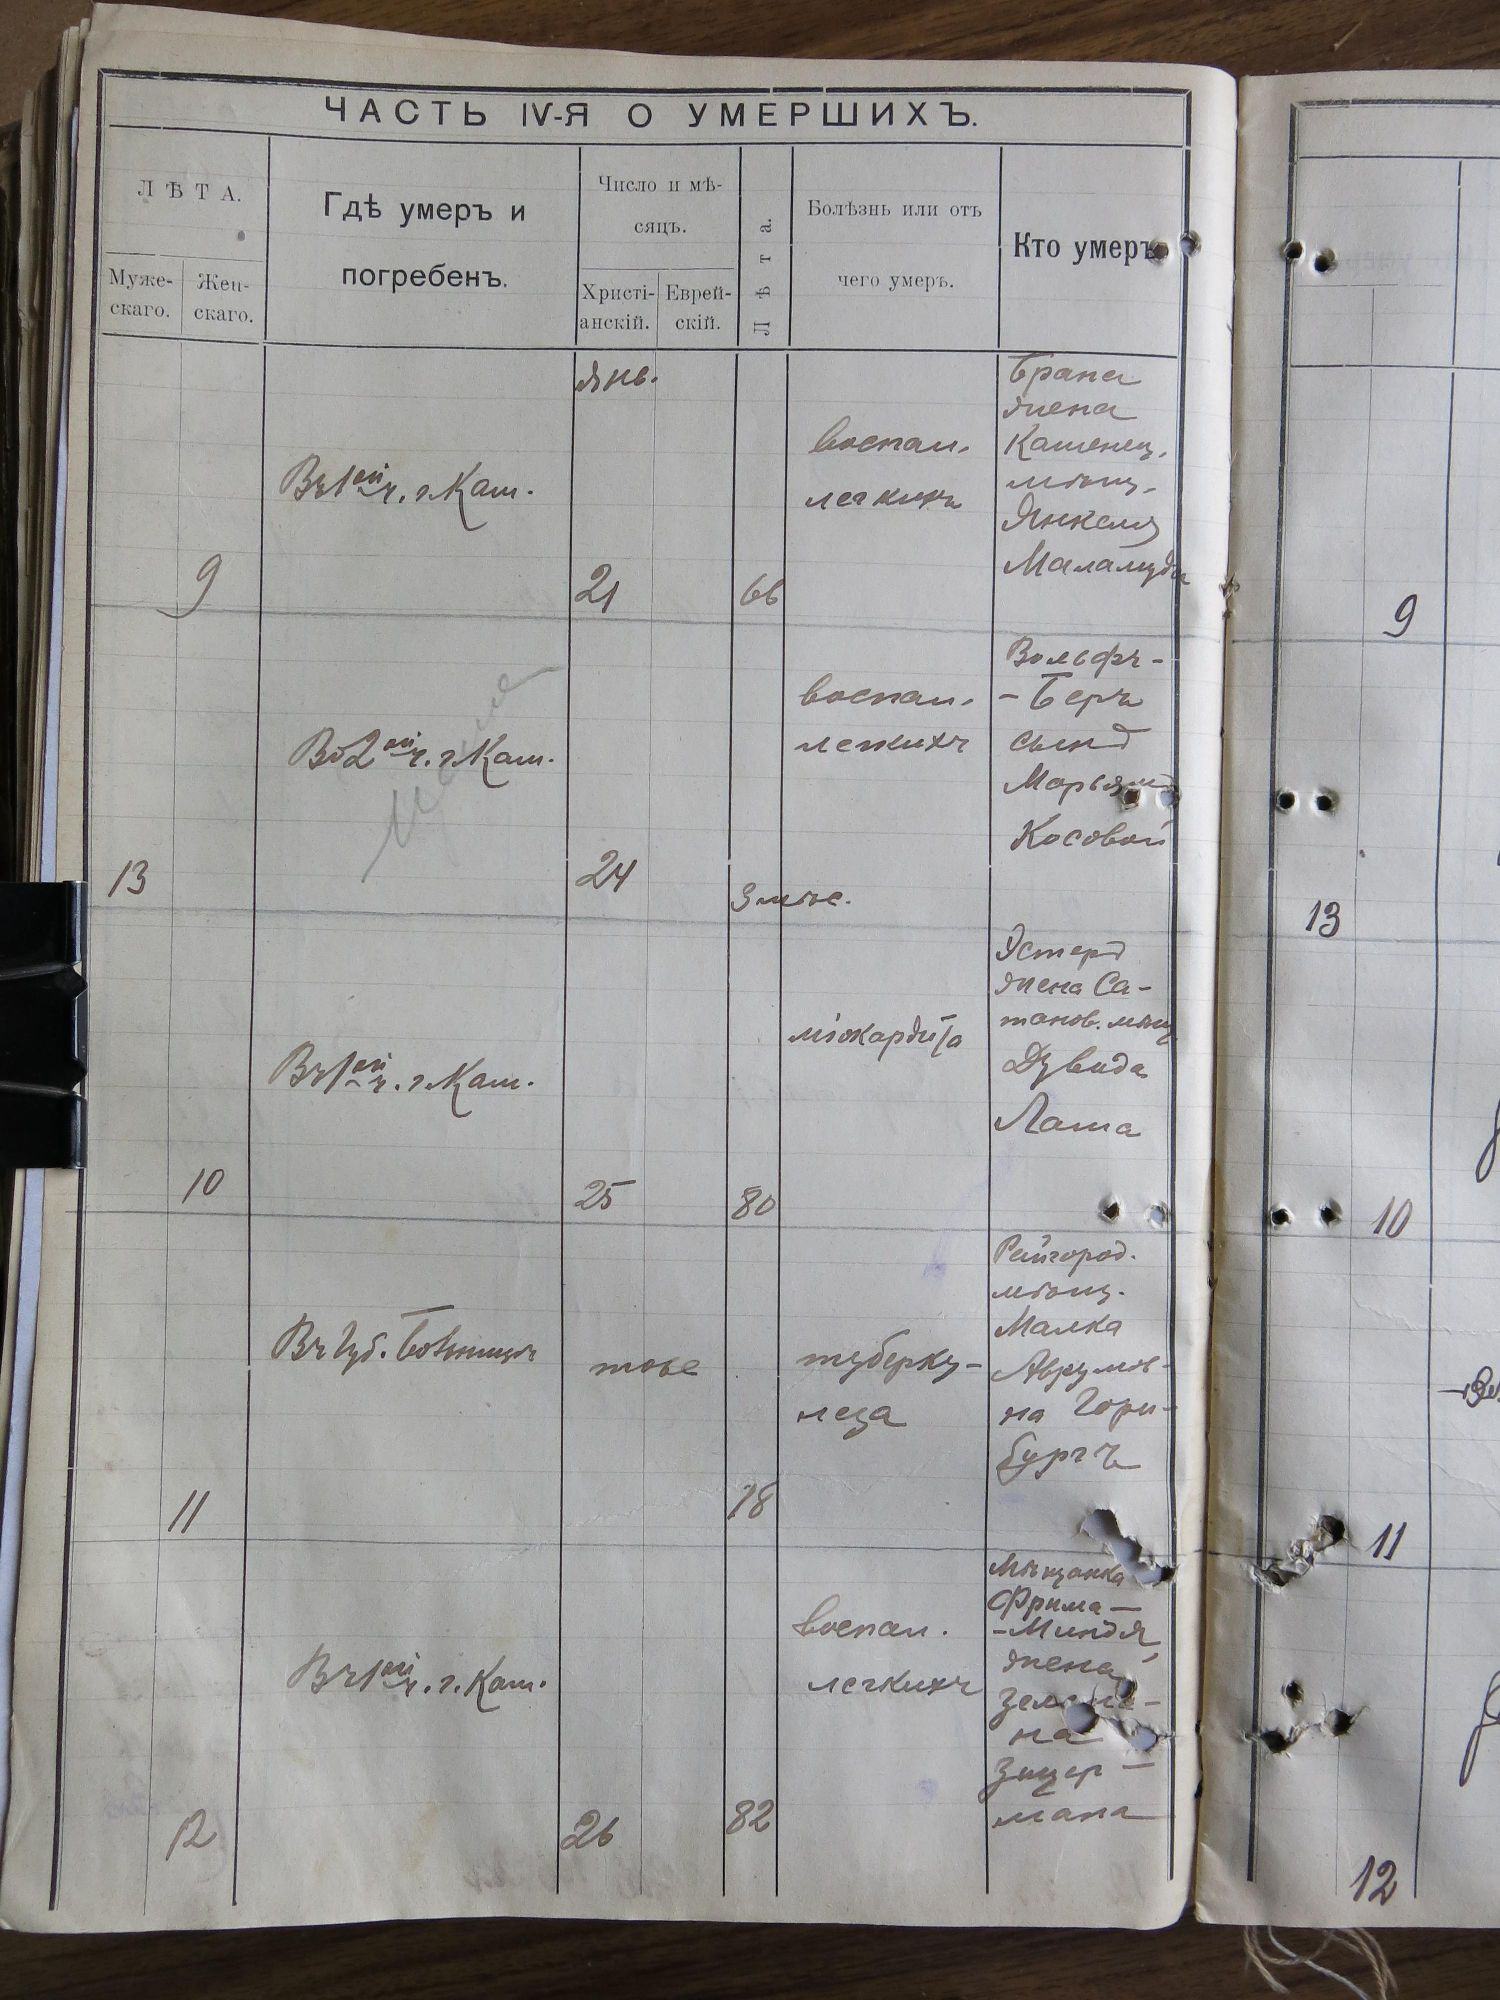 ЧАСТЬ IV-Я О УМЕРШИХЪ.
ЛѢТА.
Муже-
скаго.
Жен-
скаго.
Гдѣ умеръ и
погребенъ.
Число и мѣ-
сяцъ.
Христі-
анскій.
Еврей-
скій.
Лѣта.
Болѣзнь или отъ
чего умеръ.
Кто умеръ
9
Въ 1ой ч. г. Кам.
янв.
21
66
воспал.
легкихъ
Брана
жена
Каменец.
мѣщ.
Янкеля
Маламуда
13
Во 2ой ч. г. Кам.
24
3 мѣс.
воспал.
легкихъ
Вольфъ-
-Беръ
сынъ
Марьямъ
Косовой
10
Въ 1ой ч. г. Кам.
25
80
міокардита
Эстеръ
жена Са-
танов. мѣщ
Дувида
Лаша
11
Въ Губ. больницѣ
тоже
18
туберку-
леза
Райгород.
мѣщ.
Малка
Аврумов-
на Горн-
бургъ
12
Въ 1ой ч. г. Кам.
26
82
воспал.
легкихъ
Мѣщанка
Фрима-
-Миндля,
жена
на
Зицер-
мана
9
13
10
11
12